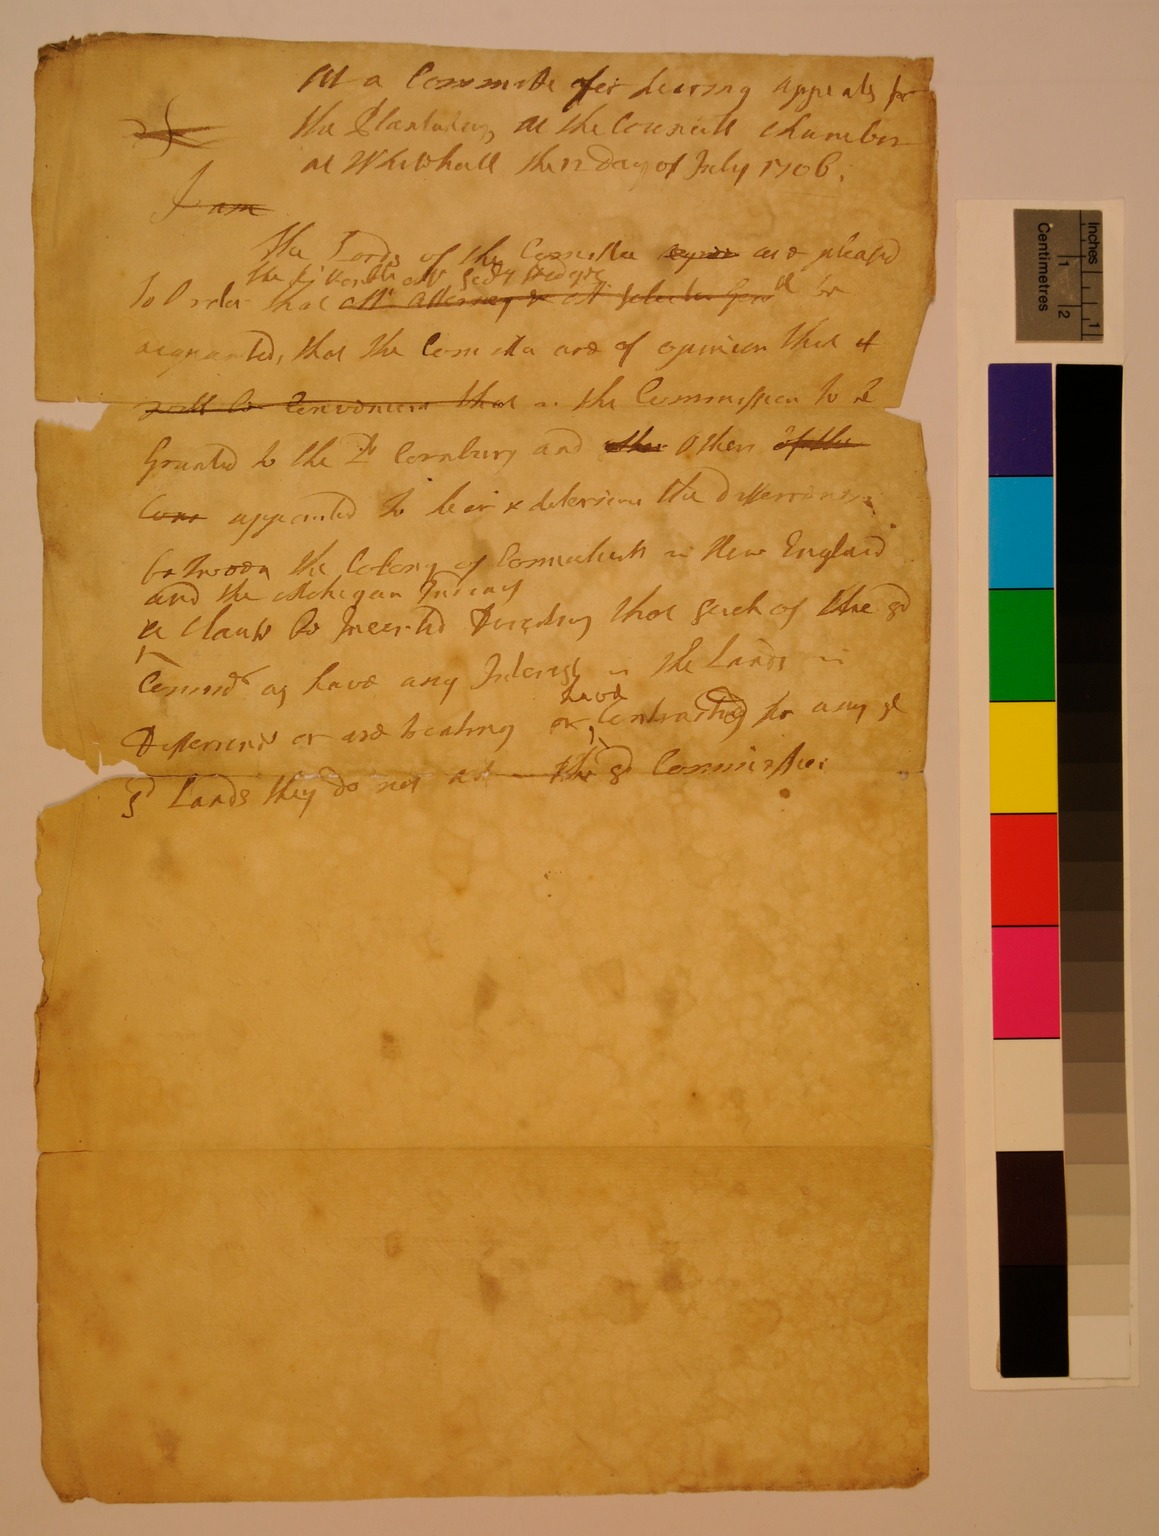 At a Committe for hearing appeals for
the Plantations, at the Councill Chamber
at Whitehall the 12 Day of July 1706.
I am
The Lords of the Comittee are pleased
the Rt Honble Mr Secry Hedges
To Order that Mr Attorney & Mr Genll be
acquainted, that the Comittee are of opinion that it
will be Convenient that in the Commission to be
Granted to the Ld Cornbury and other Others of the
Com appointed to hear & determine the differences
between the Colony of Connecticutt in New England
and the Mohegan Indians
a Clause be Incerted Directing that such of the sd
Commrs as have any Interest in the Lands in
have
Difference or are treating or Contracting for any of ye
sd Lands they do not act in the sd Commission
Inches
1
Centimetres
1
2